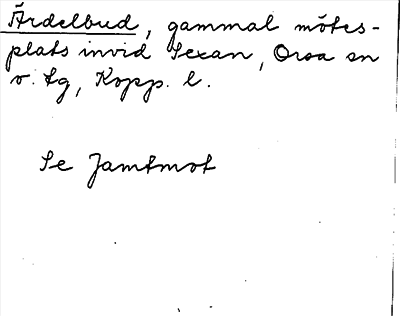 Ärdelbud, gammal mötes-
plats invid Sexan, Orsa sn
v. lg, Kopp. l.
Se Jamtmot